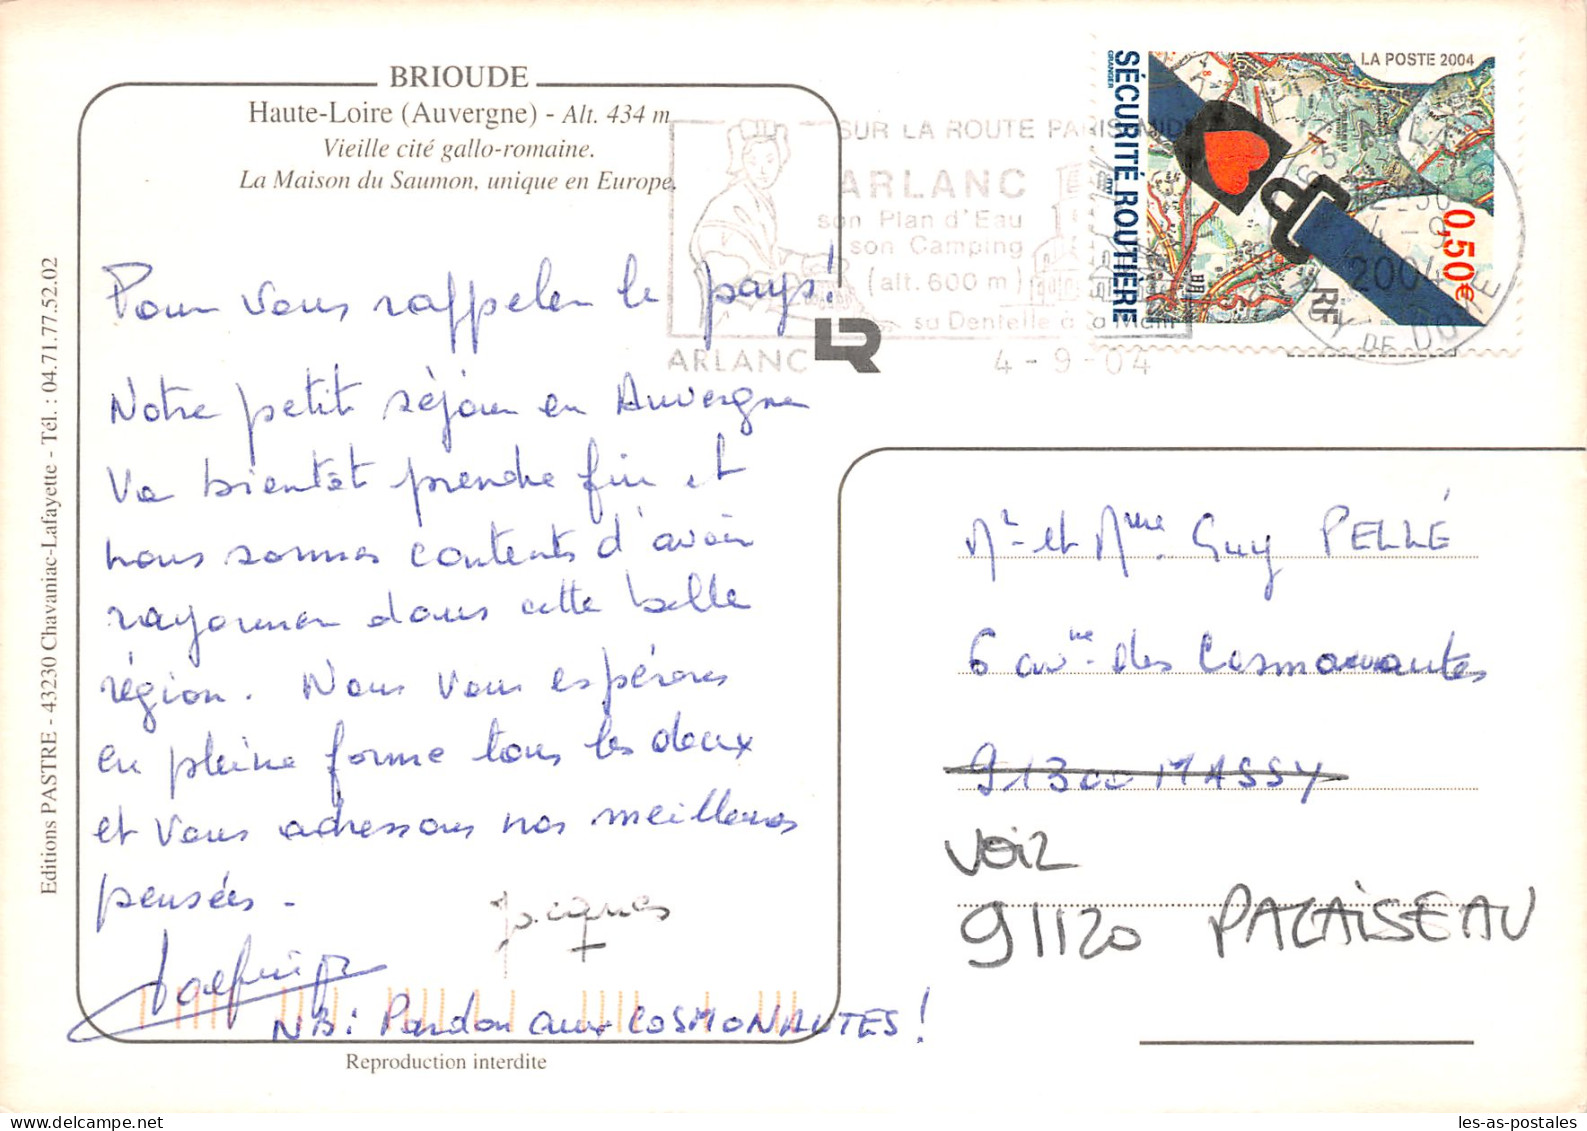 BRIOUDE
Haute-Loire (Auvergne) - Alt. 434 m
Vieille cité gallo-romaine.
La Maison du Saumon, unique en Europe.
SUR LA ROUTE PARIS MIDI
ARLANC
son Plan d'Eau
son Camping
(alt. 600 m)
sa Dentelle à la Main
ARLANC
4-9-04
SÉCURITÉ ROUTIÈRE
GRANGER
LA POSTE 2004
0,50€
RF
2004
PUY DE DOME
Editions PASTRE - 43230 Chavaniac-Lafayette - Tél. : 04.71.77.52.02
Pour vous rappeler le pays!
Notre petit séjour en Auvergne
va bientôt prendre fin et
nous sommes contents d'avoir
rayonner dans cette belle
région. Nous vous espérons
en pleine forme tous les deux
et vous adressons nos meilleures
pensées -
Jacques
NB: Pardon aux COSMONAUTES!
Reproduction interdite
Mr et Mme Guy PELLÉ
6 avnue des Cosmonautes
91300 MASSY
VOIR
91120 PALAISEAU
les-as-postales